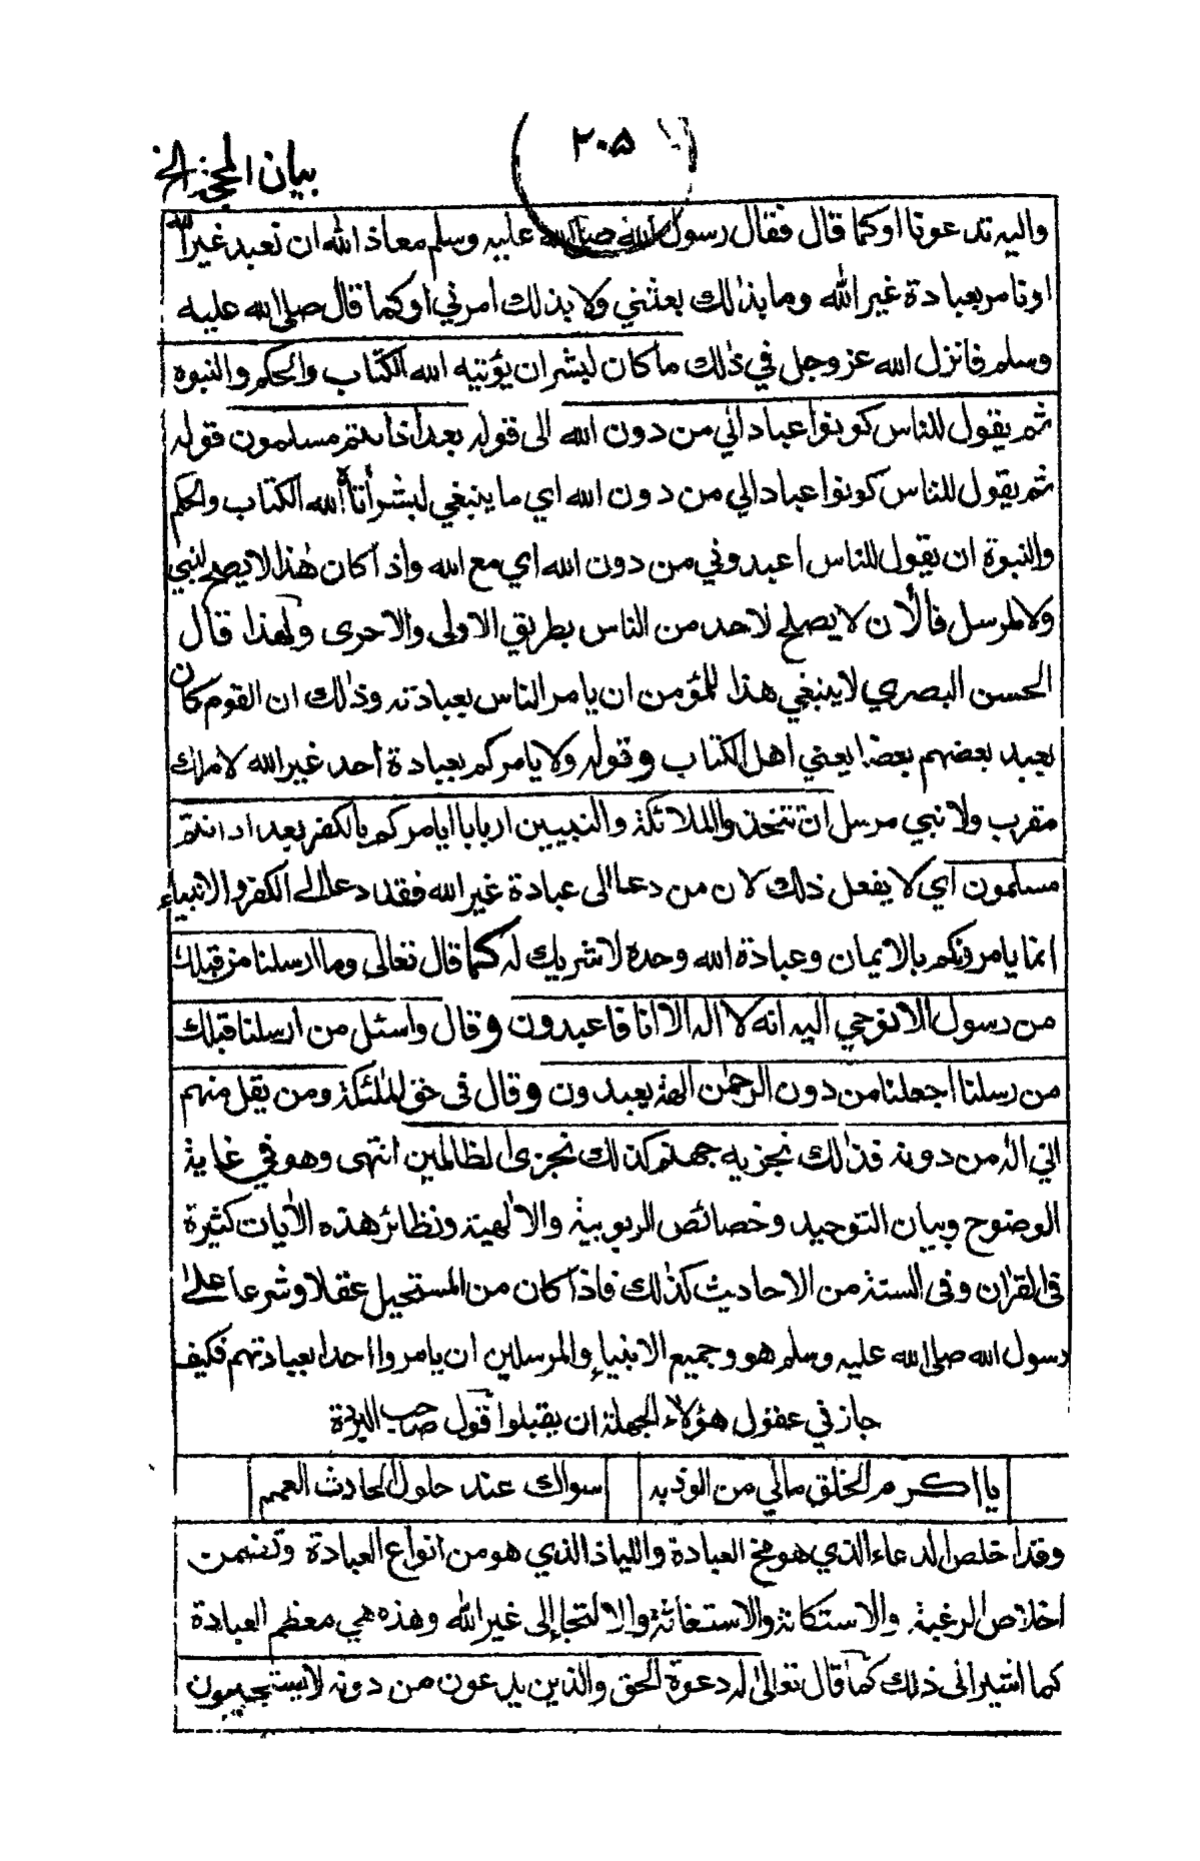 ٢٠٥
بيان المحجة الخ
واليه تدعونا اوكما قال فقال رسول الله صلى الله عليه وسلم معاذ الله ان نعبد غير الله
اونامر بعبادة غير الله وما بذلك بعثني ولا بذلك امرني اوكما قال صلى الله عليه
وسلم فانزل الله عز وجل في ذلك ما كان لبشر ان يؤتيه الله الكتاب والحكم والنبوة
ثم يقول للناس كونوا عبادا لي من دون الله الى قوله بعد اذ انتم مسلمون قوله
ثم يقول للناس كونوا عبادا لي من دون الله اي ما ينبغي لبشر أتاه الله الكتاب والحكم
والنبوة ان يقول للناس اعبدوني من دون الله اي مع الله واذا كان هذا لا يصلح لنبي
ولا لمرسل فالأن لا يصلح لاحد من الناس بطريق الاولى والاحرى ولهذا قال
الحسن البصري لا ينبغي هذا للمؤمن ان يامر الناس بعبادته وذلك ان القوم كان
يعبد بعضهم بعضا يعني اهل الكتاب وقوله ولا يامركم بعبادة احد غير الله لا ملك
مقرب ولا نبي مرسل ان تتخذوا الملائكة والنبيين اربابا ايامركم بالكفر بعد اذ انتم
مسلمون اي لا يفعل ذلك لان من دعا الى عبادة غير الله فقد دعا الى الكفر والانبياء
انما يامرونكم بالايمان وعبادة الله وحده لا شريك له كما قال تعالى وما ارسلنا من قبلك
من رسول الا نوحي اليه انه لا اله الا انا فاعبدون وقال واسئل من ارسلنا قبلك
من رسلنا اجعلنا من دون الرحمن الهة يعبدون وقال في حق الملئكة ومن يقل منهم
اني اله من دونه فذلك نجزيه جهنم كذلك نجزى الظالمين انتهى وهو في غاية
الوضوح وبيان التوحيد وخصائص الربوبية والالهية ونظائر هذه الأيات كثيرة
في القران وفي السنة من الاحاديث كذلك فاذا كان من المستحيل عقلا وشرعا على
رسول الله صلى الله عليه وسلم هو وجميع الانبياء والمرسلين ان يامروا احدا بعبادتهم فكيف
جاز في عقول هؤلاء الجهلة ان يقبلوا قول صاحب البردة
يا اكرم الخلق مالي من الوذ به سواك عند حلول الحادث العمم
وقد اخلص الدعاء الذي هو مخ العبادة واللياذ الذي هو من انواع العبادة وتضمن
اخلاص الرغبة والاستكانة والاستغاثة والالتجا إلى غير الله وهذه هي معظم العبادة
كما اشير الى ذلك كما قال تعالى له دعوة الحق والذين يدعون من دونه لا يستجيبون